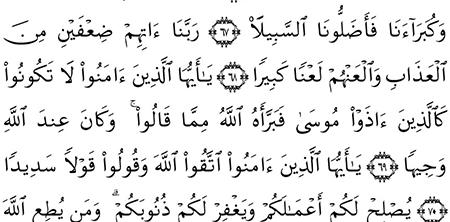 وَكُبَرَآءَنَا فَأَضَلُّونَا ٱلسَّبِيلَا۠ ٦٧ رَبَّنَآ ءَاتِهِمْ ضِعْفَيْنِ مِنَ
ٱلْعَذَابِ وَٱلْعَنْهُمْ لَعْنًا كَبِيرًا ٦٨ يَـٰٓأَيُّهَا ٱلَّذِينَ ءَامَنُوا۟ لَا تَكُونُوا۟
كَٱلَّذِينَ ءَاذَوْا۟ مُوسَىٰ فَبَرَّأَهُ ٱللَّهُ مِمَّا قَالُوا۟ ۚ وَكَانَ عِندَ ٱللَّهِ
وَجِيهًا ٦٩ يَـٰٓأَيُّهَا ٱلَّذِينَ ءَامَنُوا۟ ٱتَّقُوا۟ ٱللَّهَ وَقُولُوا۟ قَوْلًا سَدِيدًا
٧٠ يُصْلِحْ لَكُمْ أَعْمَـٰلَكُمْ وَيَغْفِرْ لَكُمْ ذُنُوبَكُمْ ۗ وَمَن يُطِعِ ٱللَّهَ